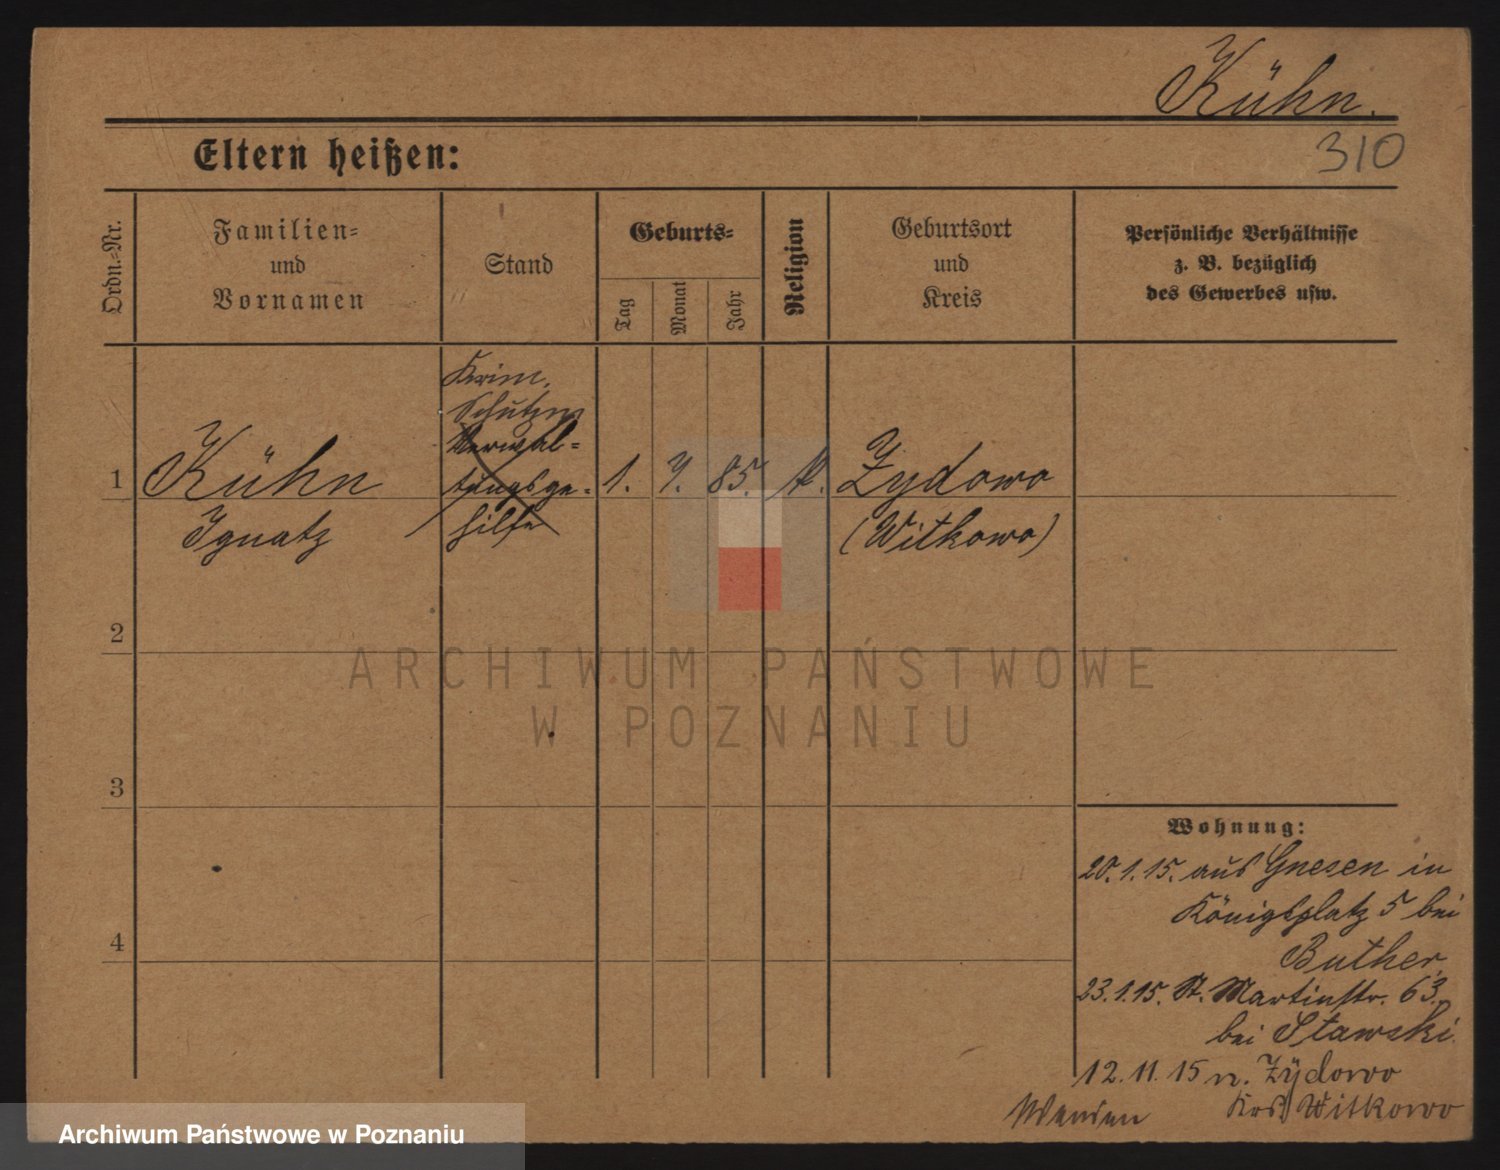 Kühn.
310
Eltern heißen:
Ordn.-Nr.
Familien-
und
Vornamen
Stand
Geburts-
Tag
Monat
Jahr
Religion
Geburtsort
und
Kreis
Persönliche Verhältnisse
z. B. bezüglich
des Gewerbes usw.
Krim.
Schutzm
Verwal-
tungsge-
hilfe
1
Kühn
1. 7. 85. K.
Zydowo
Ignatz
(Witkowo)
2
ARCHIWUM PAŃSTWOWE
W POZNANIU
3
Wohnung:
20.1.15. aus Gnesen in
Königsplatz 5 bei
Buther
23.1.15. St. Martinstr. 63.
bei Stawski.
12.11.15 n. Zÿdowo
Krs. Witkowo
Wenden
4
Archiwum Państwowe w Poznaniu